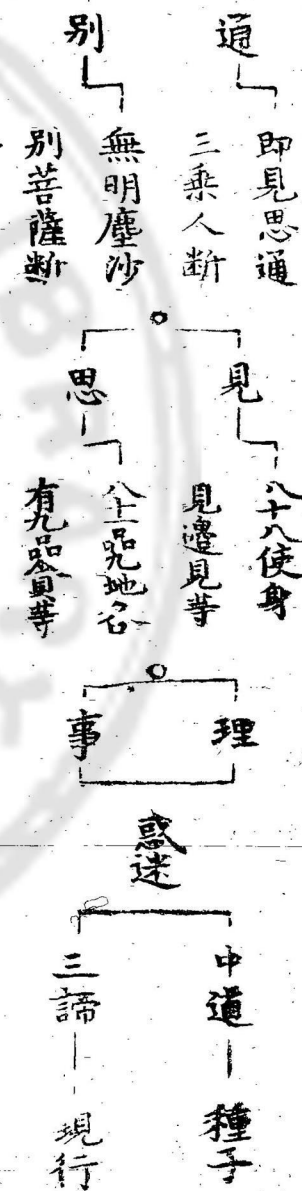 通
即見思通
三乘人断
別
無明塵沙
別菩薩断
見
八十八使身
見邊見等
思
八十一品九地各
有九品貪等
理
事
惑迷
中道
種子
三諦
現行